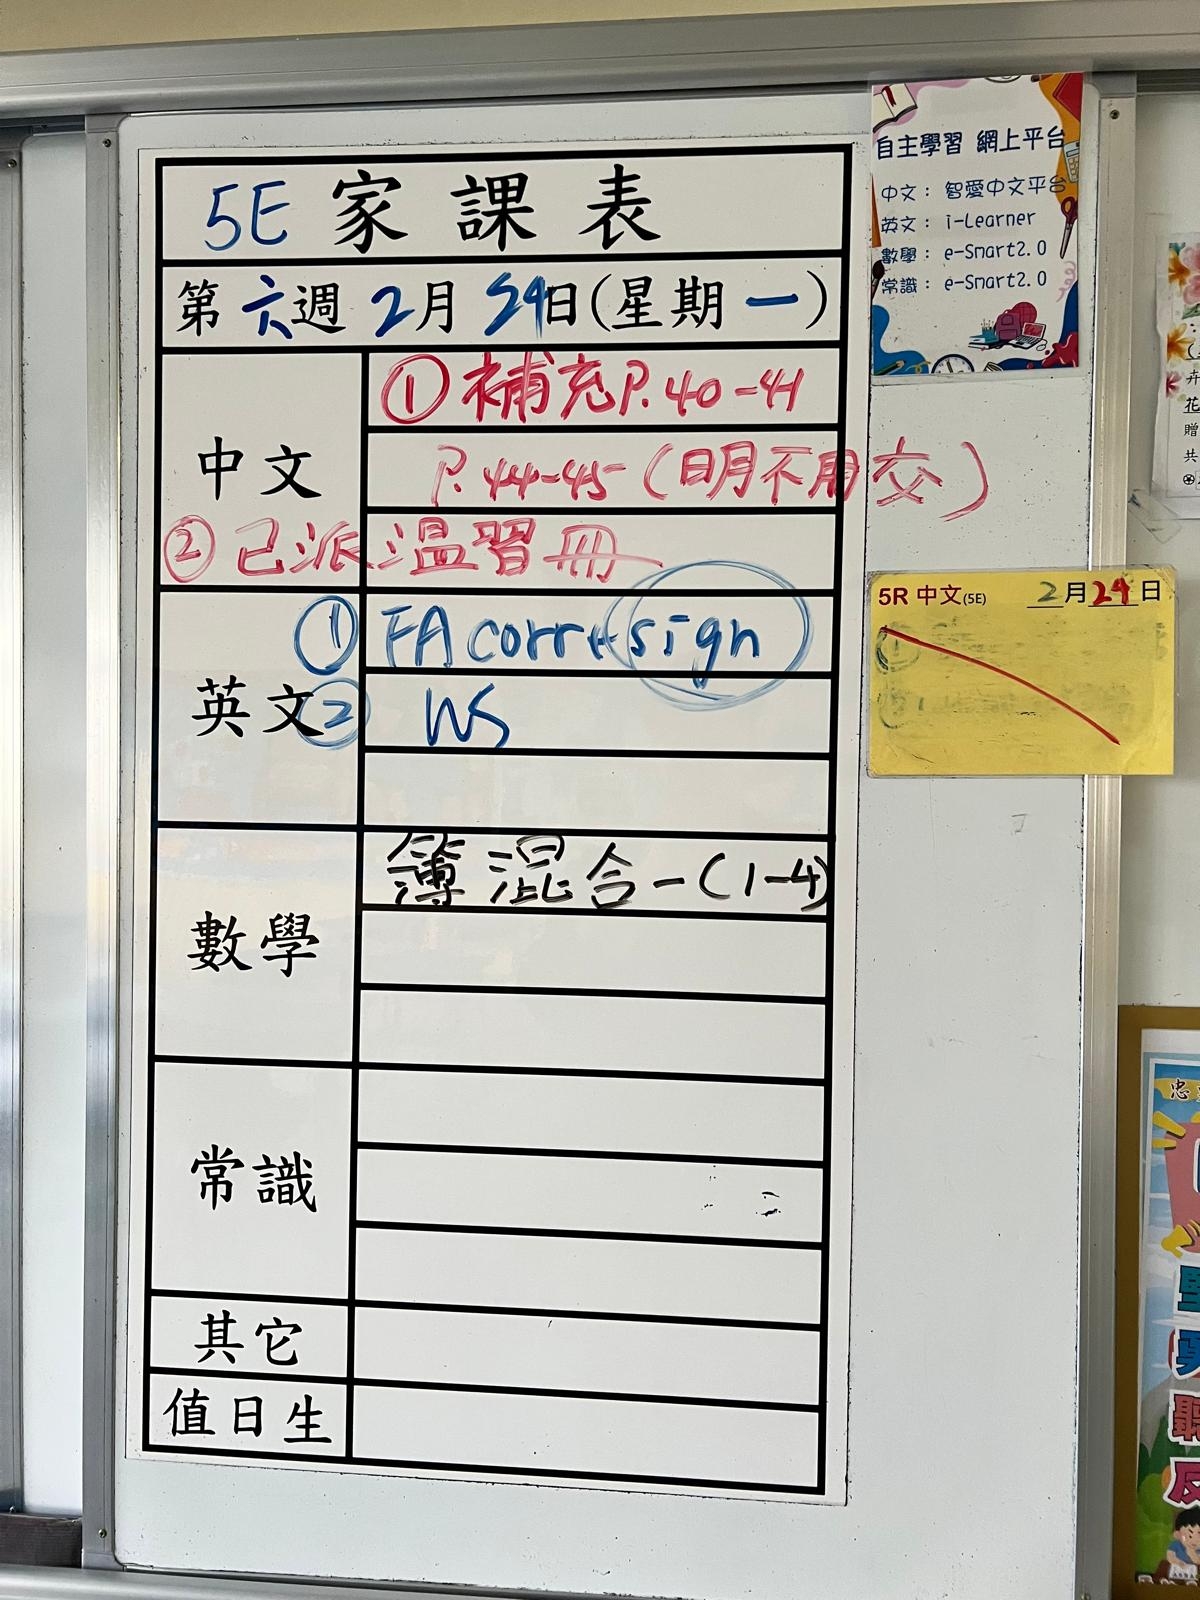 5E 家課表
第六週 2月24日(星期一)
中文
① 補充P.40-41
P.44-45 (明不用交)
② 已派溫習冊
英文
① FA corr+sign
② WS
數學
簿 混合一(1-4)
常識
其它
值日生
自主學習 網上平台
中文： 智愛中文平台
英文： i-Learner
數學： e-Smart2.0
常識： e-Smart2.0
5R 中文(5E) 2月24日
卉
花
贈
共
忠
堅
勇
聽
反